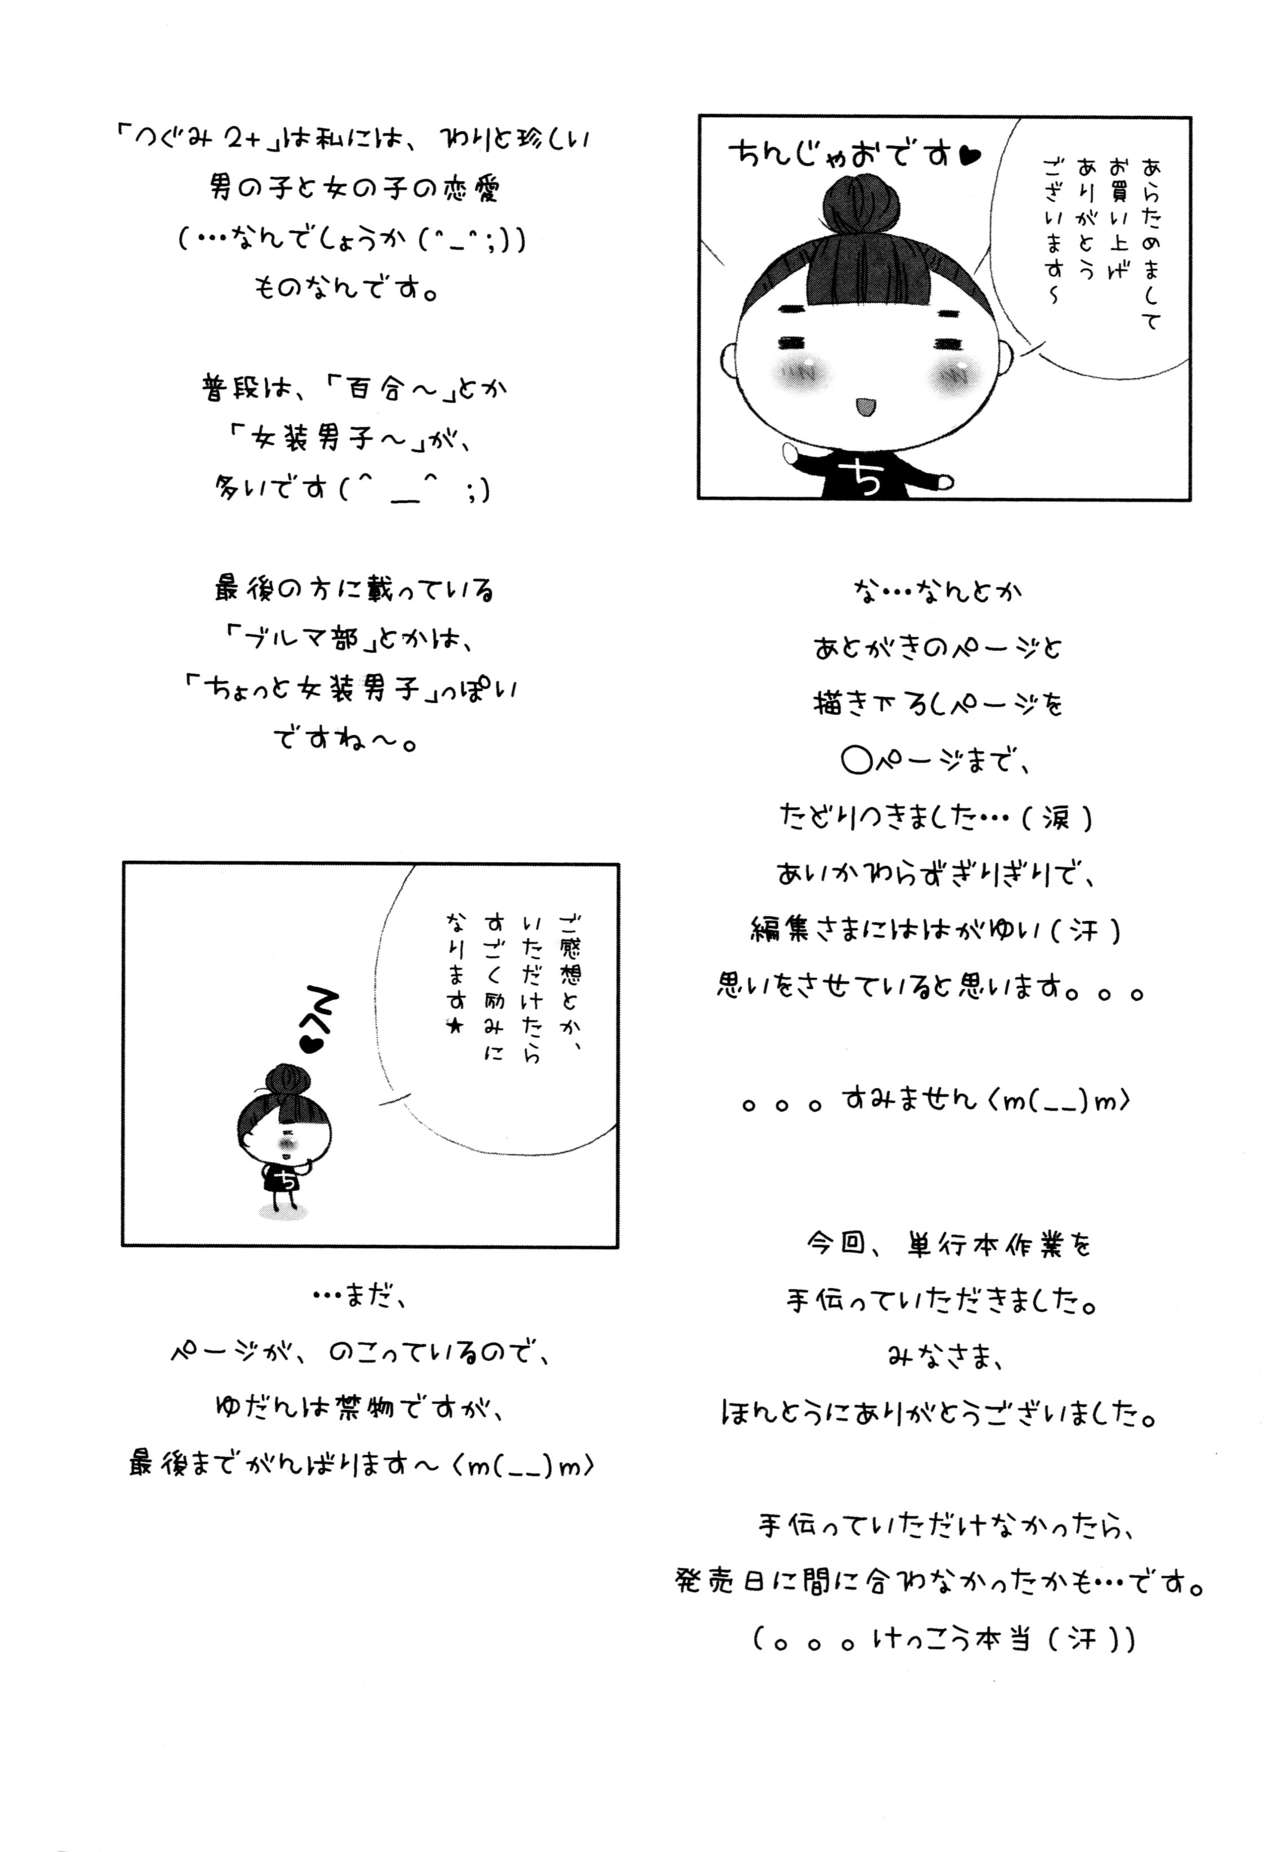 ちんじゃおです♥
あらためまして
お買い上げ
ありがとう
ございます～
ち
な…なんとか
あとがきのページと
描き下ろしページを
◯ページまで、
たどりつきました…(涙)
あいかわらずぎりぎりで、
編集さまにははがゆい(汗)
思いをさせていると思います。。。
。。。すみません〈m(__)m〉
今回、単行本作業を
手伝っていただきました。
みなさま、
ほんとうにありがとうございました。
手伝っていただけなかったら、
発売日に間に合わなかったかも…です。
(。。。けっこう本当(汗))
「つぐみ2+」は私には、わりと珍しい
男の子と女の子の恋愛
(…なんでしょうか(^_^;))
ものなんです。
普段は、「百合～」とか
「女装男子～」が、
多いです(^__^ ;)
最後の方に載っている
「ブルマ部」とかは、
「ちょっと女装男子」っぽい
ですね～。
ご感想とか、
いただけたら
すごく励みに
なります★
ち
…まだ、
ページが、のこっているので、
ゆだんは禁物ですが、
最後までがんばります～〈m(__)m〉